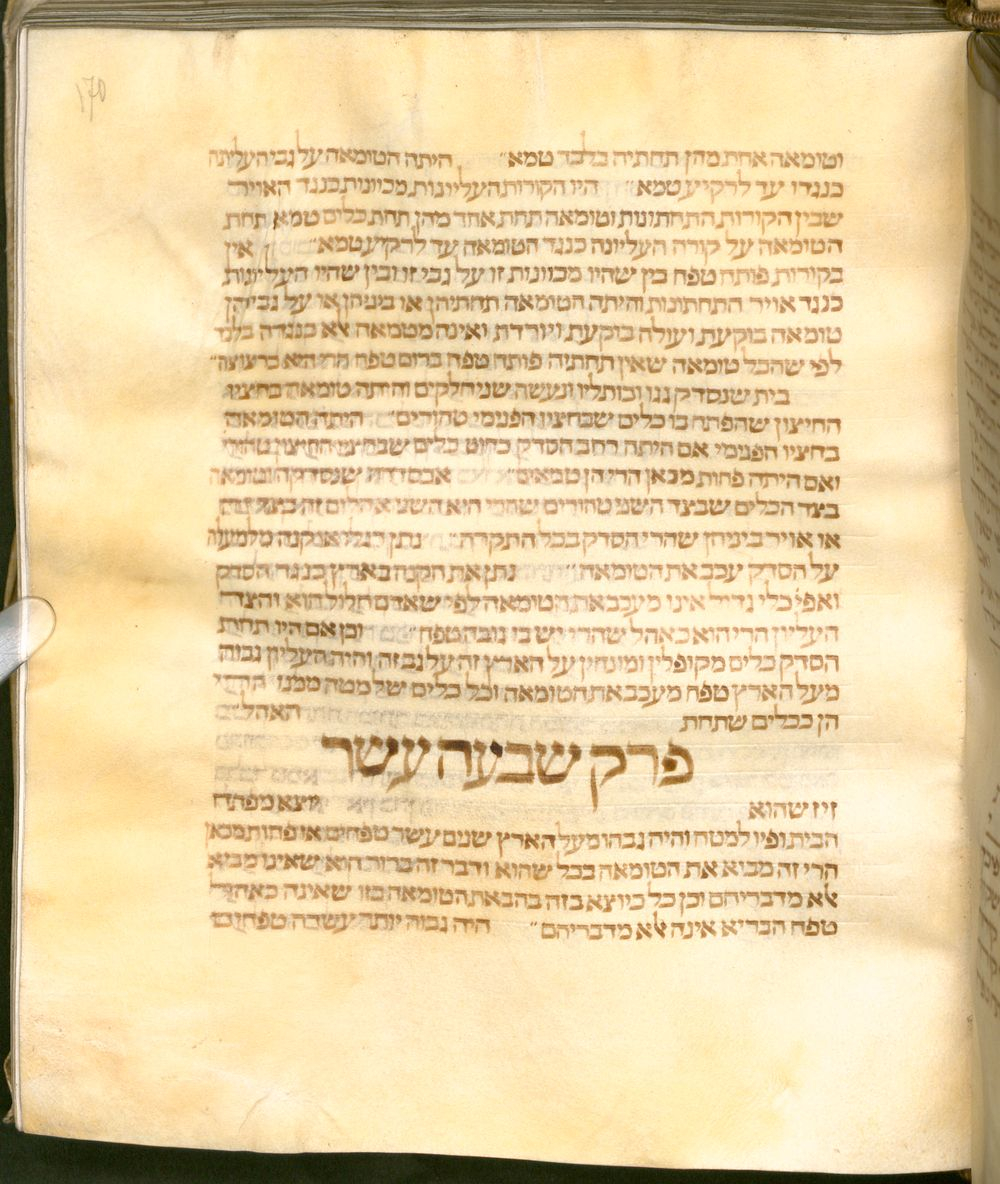 170
וטומאה אחת מהן תחתיה בלבד טמא״ היתה הטומאה על גבי העליונה
כנגדו עד לרקיע טמא״ היו הקורות העליונות מכוונות כנגד האויר
שבין הקורות התחתונות וטומאה תחת אחד מהן תחת כלים טמא תחת
הטומאה על קורה העליונה כנגד הטומאה עד לרקיע טמא״ אין
בקורות פותח טפח בין שהיו מכוונות זו על גבי זו ובין שהיו העליונות
כנגד אויר התחתונות והיתה הטומאה תחתיהן או ביניהן או על גביהן
טומאה בוקעת ועולה בוקעת ויורדת ואינה מטמאה אלא כנגדה בלבד
לפי שהכל טומאה שאין תחתיה פותח טפח ברום טפח הרי היא כרצוצה״
בית שנסדק גגו וכותליו ונעשה שני חלקים והיתה טומאה בחציו
החיצון שהפתח בו כלים שבחציו הפנימי טהורים״ היתה הטומאה
בחציו הפנימי אם היתה רחב הסדק כחוט כלים שבחציו החיצון טהורין
ואם היתה פחות מכאן הרי הן טמאים״ אכסדרה שנסדקה וטומאה
בצד הכלים שבצד השני טהורים שהרי היא השני אהלים זה בצד זה
או אויר ביניהן שהרי הסדק בכל התקרה״ נתן רגלו או קנה מלמעלה
על הסדק עכב את הטומאה״ נתן את הקנה בארץ כנגד הסדק
ואפי׳ כלי גדול אינו מעכב את הטומאה לפי שאדם חלול הוא והצד
העליון הרי הוא כאהל שהרי יש בו גובה טפח״ וכן אם היו תחת
הסדק כלים מקופלין ומונחין על הארץ זה על גב זה והיה העליון גבוה
מעל הארץ טפח מעכב את הטומאה וכל כלים של מטה ממנו הרי
הן ככלים שתחת האהל״
פרק שבעה עשר
זיז שהוא יוצא מפתח
הבית ופיו למטה והיה גבהו מעל הארץ שנים עשר טפחים או פחות מכאן
הרי זה מביא את הטומאה בכל שהוא ודבר זה ברור הוא שאינו מביא
אלא מדבריהם וכן כל כיוצא בזה בהבאת הטומאה כזו שאינה כאהל
טפח הבריא אינה אלא מדבריהם״ היה גבוה יותר עשרה טפחים